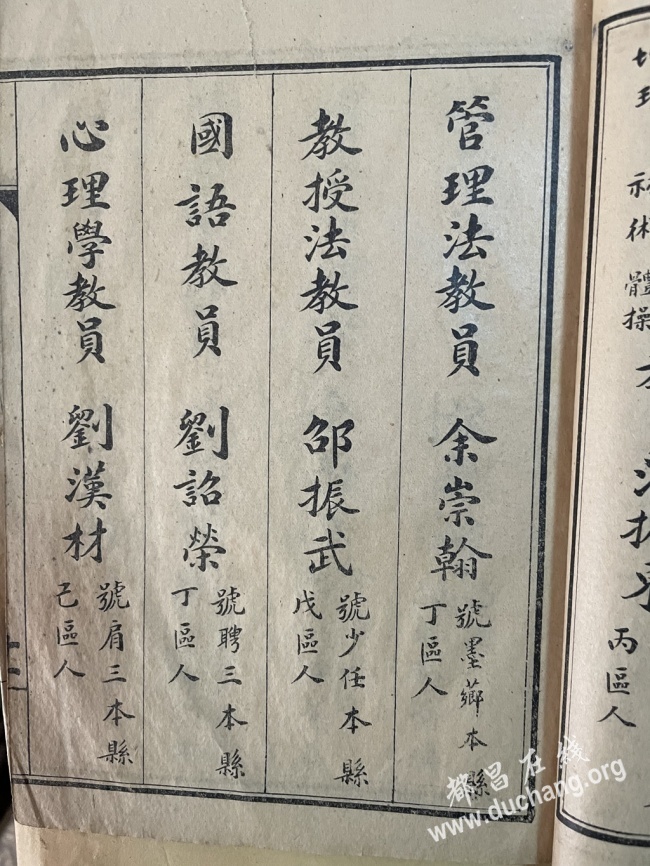 地理 術 體操
丙區人
管理法教員 余崇翰 號墨薌本縣丁區人
教授法教員 邵振武 號少任本縣戊區人
國語教員 劉詔榮 號聘三本縣丁區人
心理學教員 劉漢材 號肩三本縣己區人
十二
都昌在线
www.duchang.org